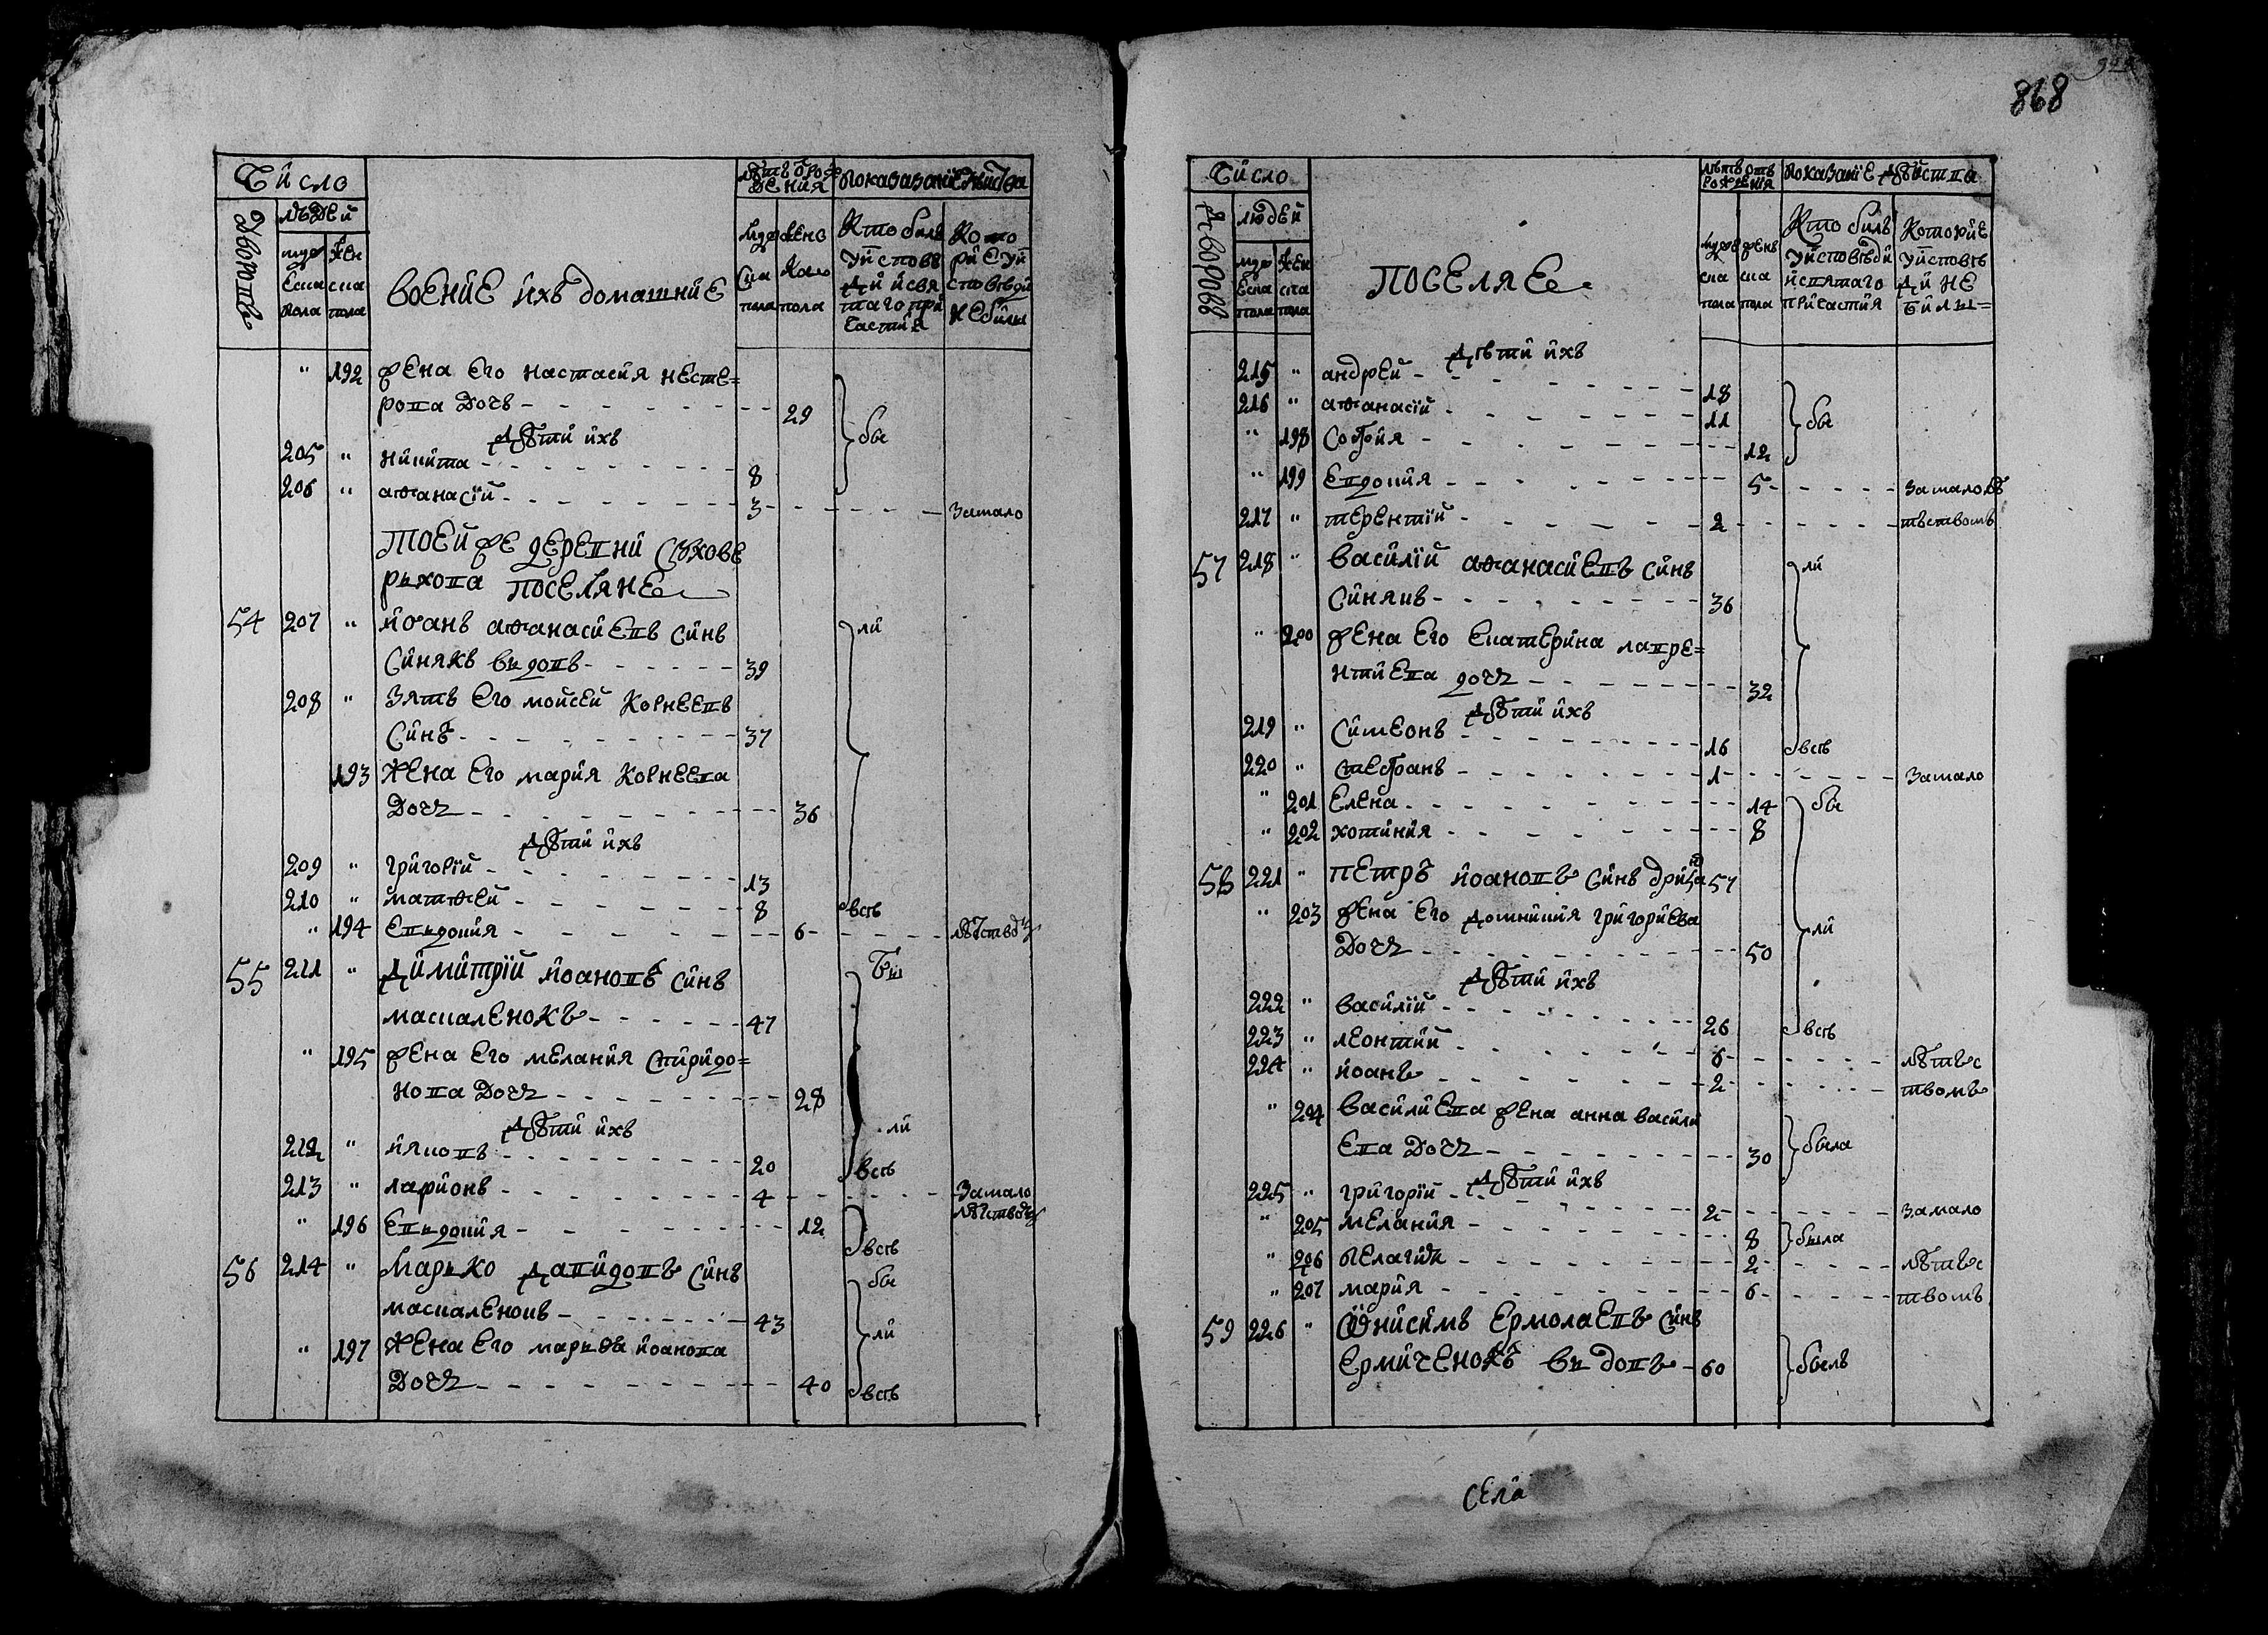 868
Число
лѣтъ ѿ рож
дения
показание действа
Дворовъ
людей
муж
еска
пола
жен
ска
пола
военние ихъ домашние
муже
ска
пола
женс
кого
пола
Кто билъ
у исповѣ
ди и свя
таго при
частия
Кото
рие у и
сповѣди
не были
" 192 жена его настасия несте=
рова дочъ - - - 29 бы
дѣти ихъ
205 " никита - - - 8
206 " афанасий - - - 3 - - - за мало
тоей же деревни Суховѣ
рькова поселяне
54 207 " иоанъ афанасиевъ синъ ли
Синякъ вьдовъ - - - 39
208 " зять его мойсей корнѣевъ
Синъ - - - 37
193 жена его мария корнѣева
дочь - - - 36
дѣти ихъ
209 " григорий - - - 13
210 " матфей - - - 8 всѣ
" 194 евьдокия - - - 6 - - - лѣтством
55 211 " димитрий иоановъ синъ бы
маскаленокъ - - - 47
" 195 жена его мелания спиридо=
нова дочь - - - 28
дѣти ихъ ли
212 " ияковъ - - - 20 всѣ
213 " ларионъ - - - 4 - - - за мало
лѣтством
" 196 евьдокия - - - 12
всѣ
56 214 " марько давидовъ синъ бы
маскаленокъ - - - 43 ли
" 197 жена его марьфа иоанова
дочь - - - 40 всѣ
Число
лѣтъ отъ
рожения
показание дѣйства
дворовъ
людей
муж
еска
пола
жен
ска
пола
поселяне
муже
ска
пола
женъ
ска
пола
Кто билъ
у исповѣди
и святаго
причастия
Которие
у исповѣ
ди не
били=
дѣти ихъ
215 " андрей - - - 18
216 " афанасий - - - 11 бы
" 198 София - - - 12
" 199 Евдокия - - - 5 - - - за малолѣ
217 " терентий - - - 2 - - - тъствомъ
57 218 " василий афанасиевъ синъ ли
Синякъ - - - 36
" 200 жена его екатерина лавре=
нтиева дочь - - - 32
дѣти ихъ
219 " Симеонъ - - - 16 всѣ
220 " стефанъ - - - 1 - - - за мало
" 201 елена - - - 14 бы
" 202 хотиния - - - 8
58 221 " петръ иоановъ синъ 57
" 203 жена его домникия григориева
дочь - - - 50 ли
дѣти ихъ
222 " василий - - - 26 всѣ
223 " леонтий - - - 6 - - - лѣтъс
224 " иоанъ - - - 2 - - - твомъ
" 204 василиева жена анна васили
ева дочь - - - 30 была
дѣти ихъ
225 " григорий - - - 2 - - - за мало
" 205 мелания - - - 8 была
" 206 пелагия - - - 2 - - - лѣтъс
" 207 мария - - - 6 - - - твомъ
59 226 " Онисимъ ермолаевъ синъ
ермиченокъ вьдовъ - 60 былъ
села